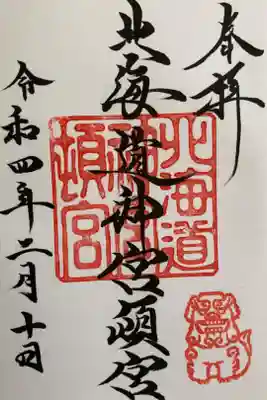 奉拝
北海道神宮頓宮
北海道神宮頓宮
令和四年二月十四日